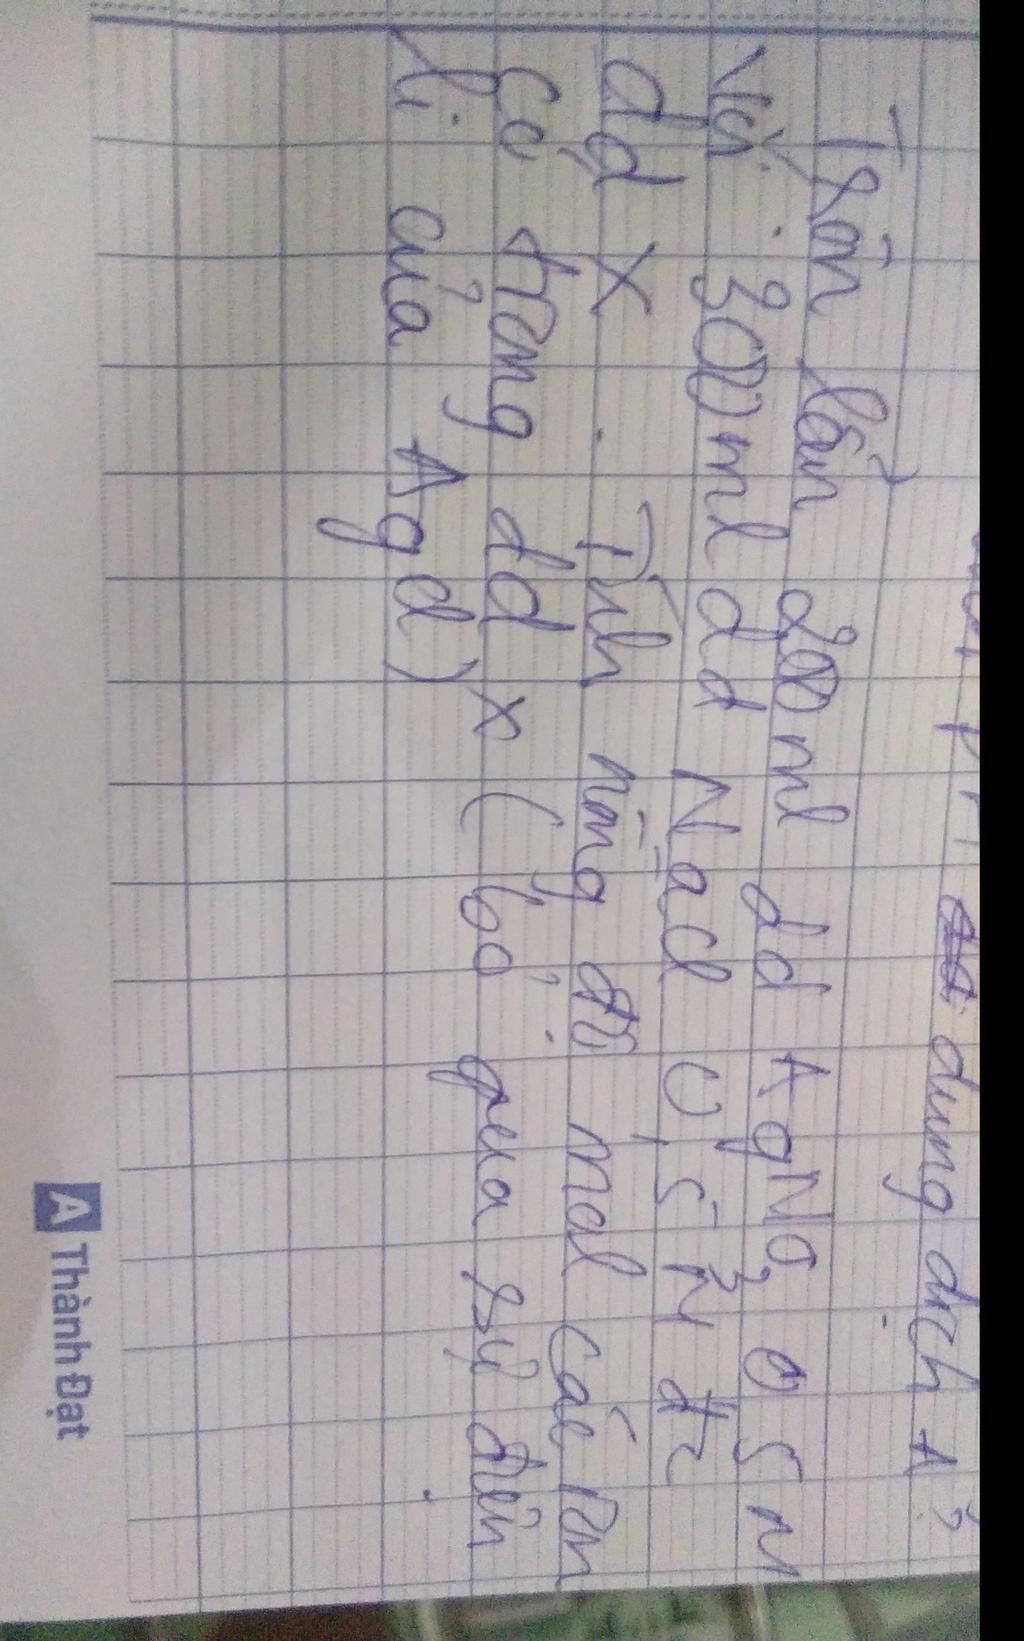 dung dịch A?
Trộn lẫn 200 ml dd AgNO3 0 5 M
Với 300 ml dd NaCl 0,5 M đc
dd X. Tính nồng độ mol các ion
có trong dd x (bỏ qua sự điện
li của Agd)
A Thành Đạt